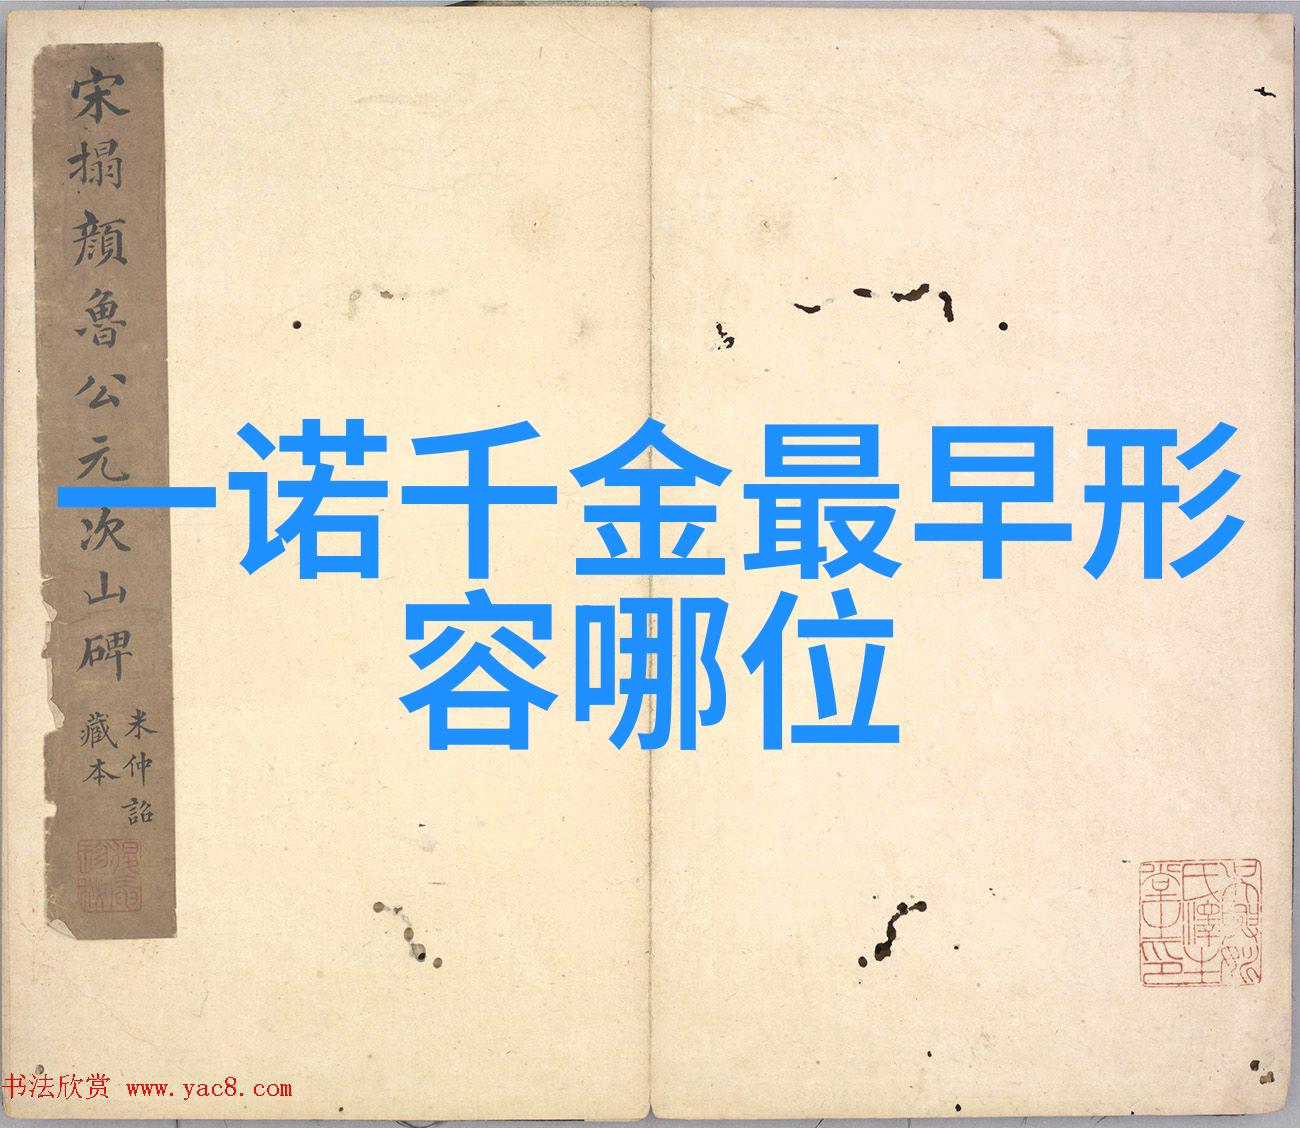 宋搨顔魯公元次山碑
米仲詔
藏本
一诺千金最早形
容哪位
书法欣赏 www.yac8.com